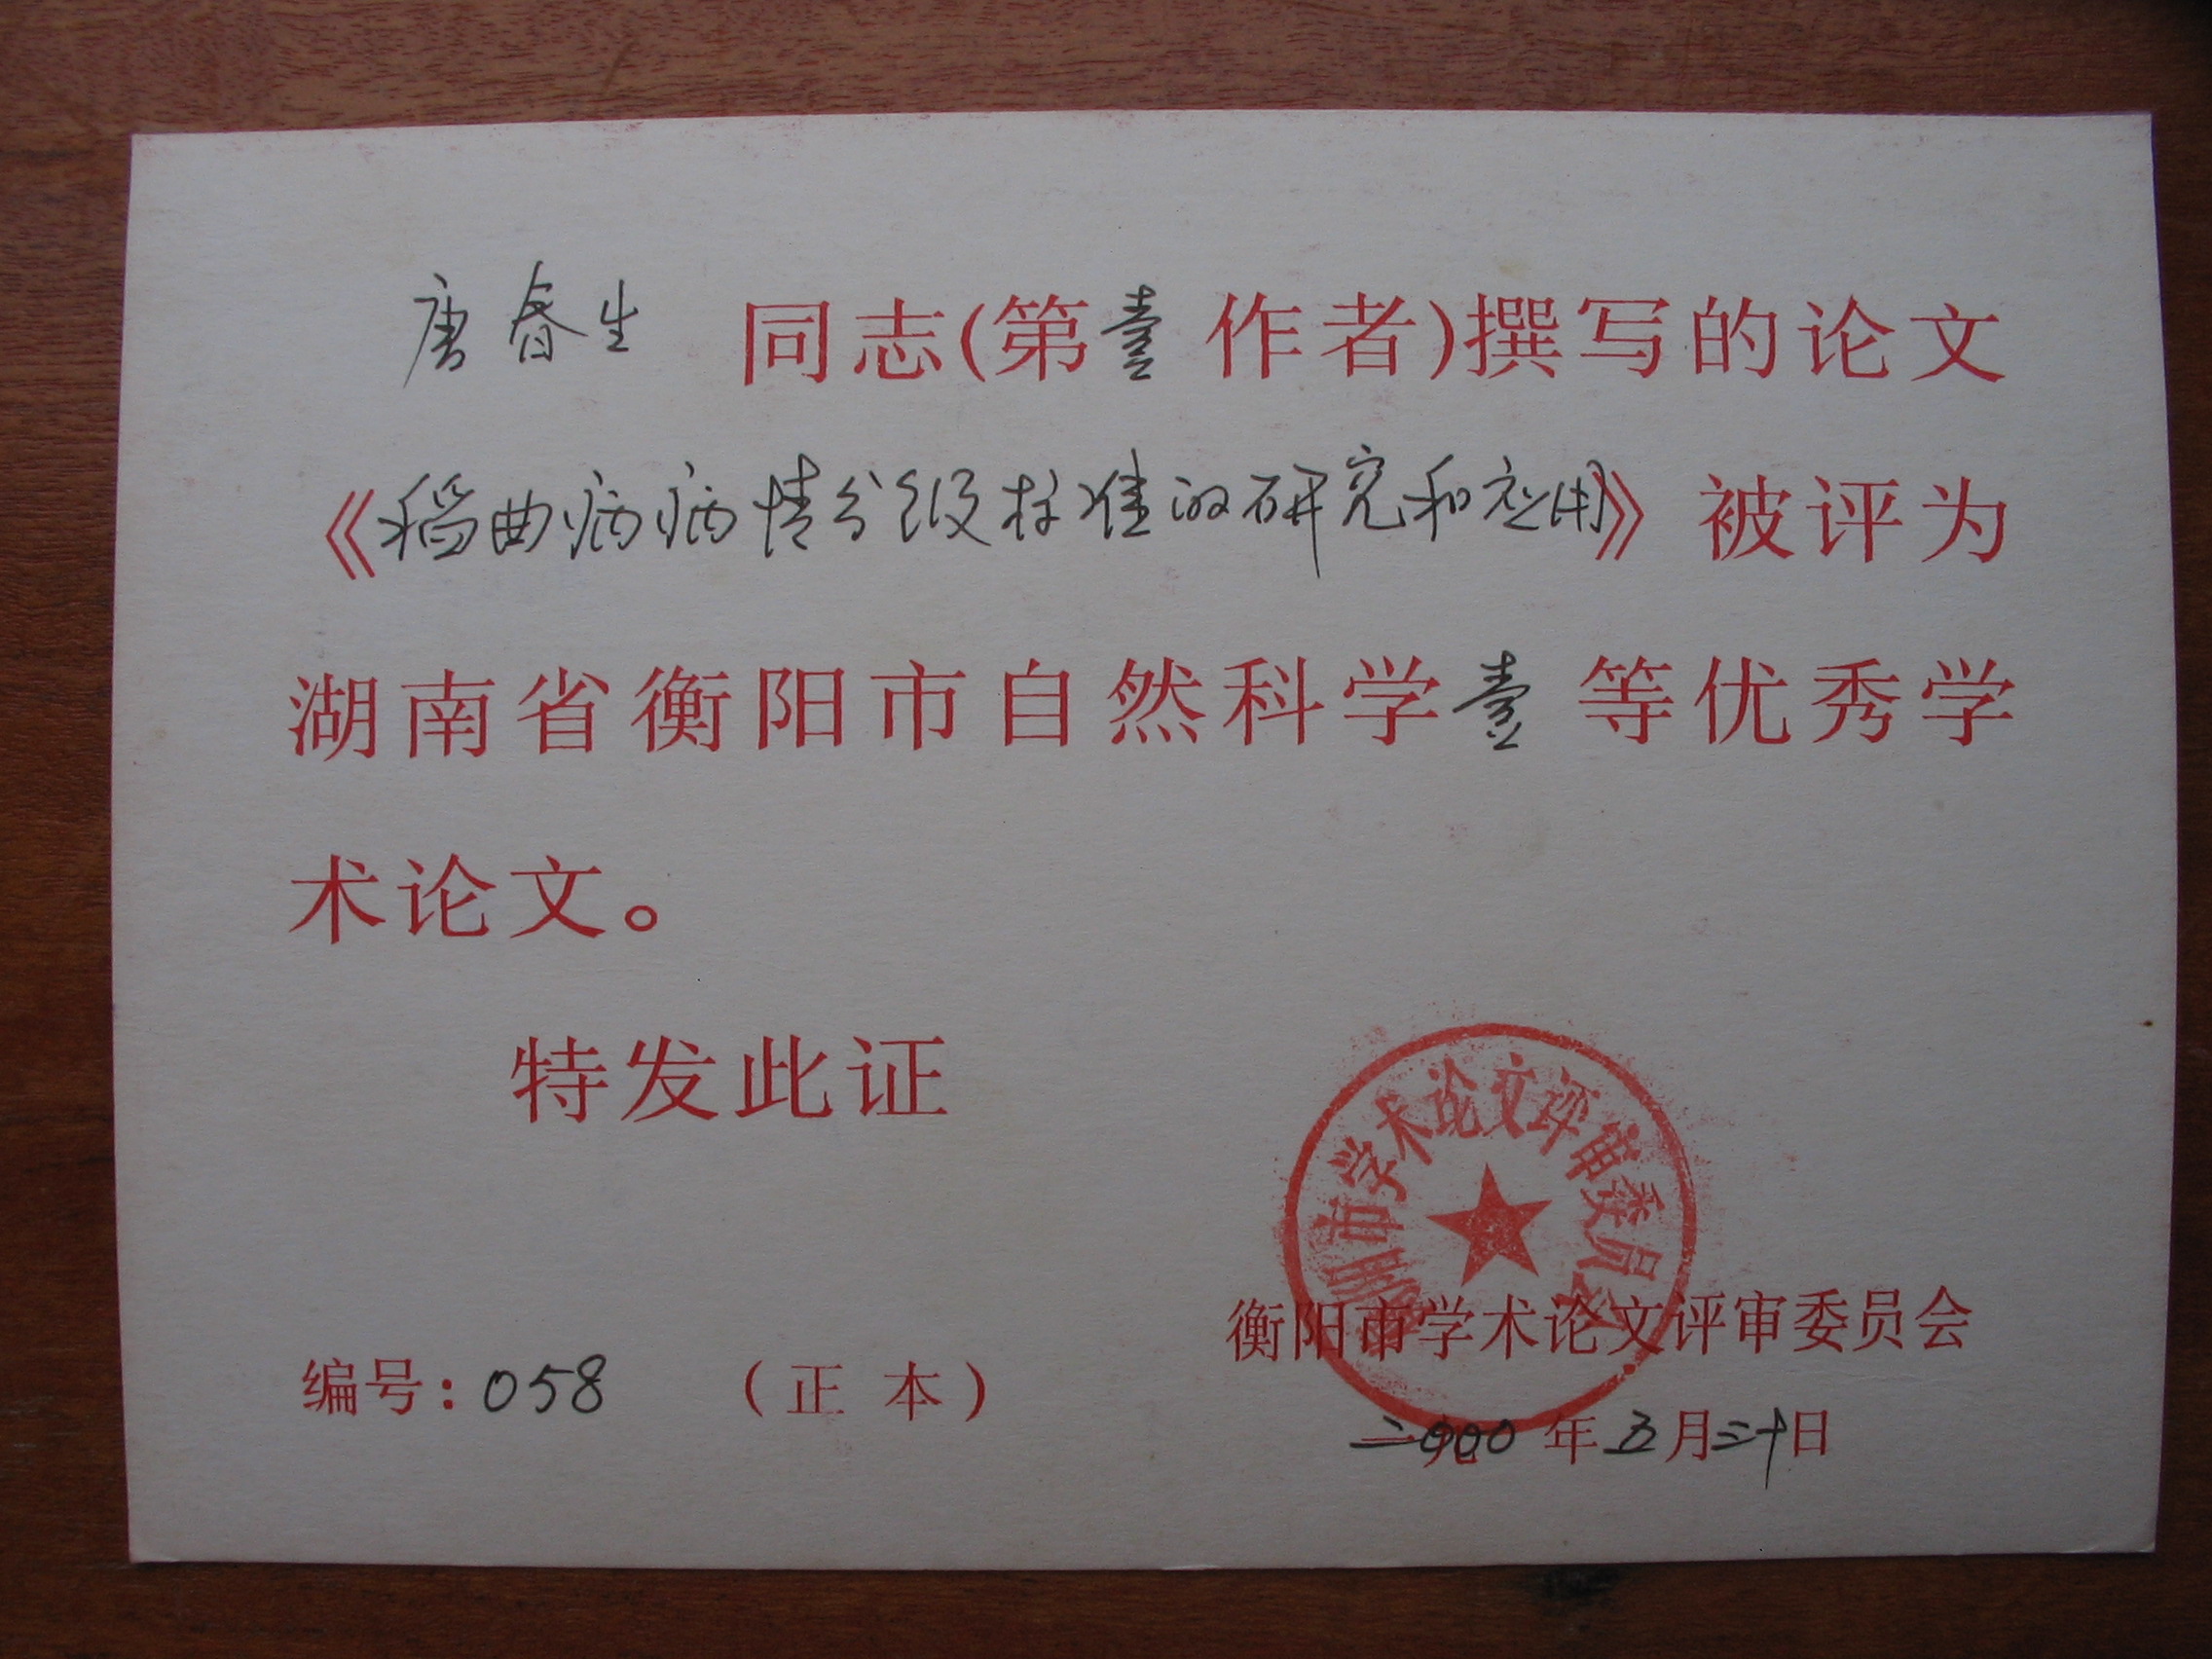 唐春生 同志(第壹作者)撰写的论文
《稻曲病病情分级标准的研究和应用》被评为
湖南省衡阳市自然科学壹等优秀学
术论文。
特发此证
衡阳市学术论文评审委员会
衡阳市学术论文评审委员会
编号:058 (正本)
二000年五月二十日